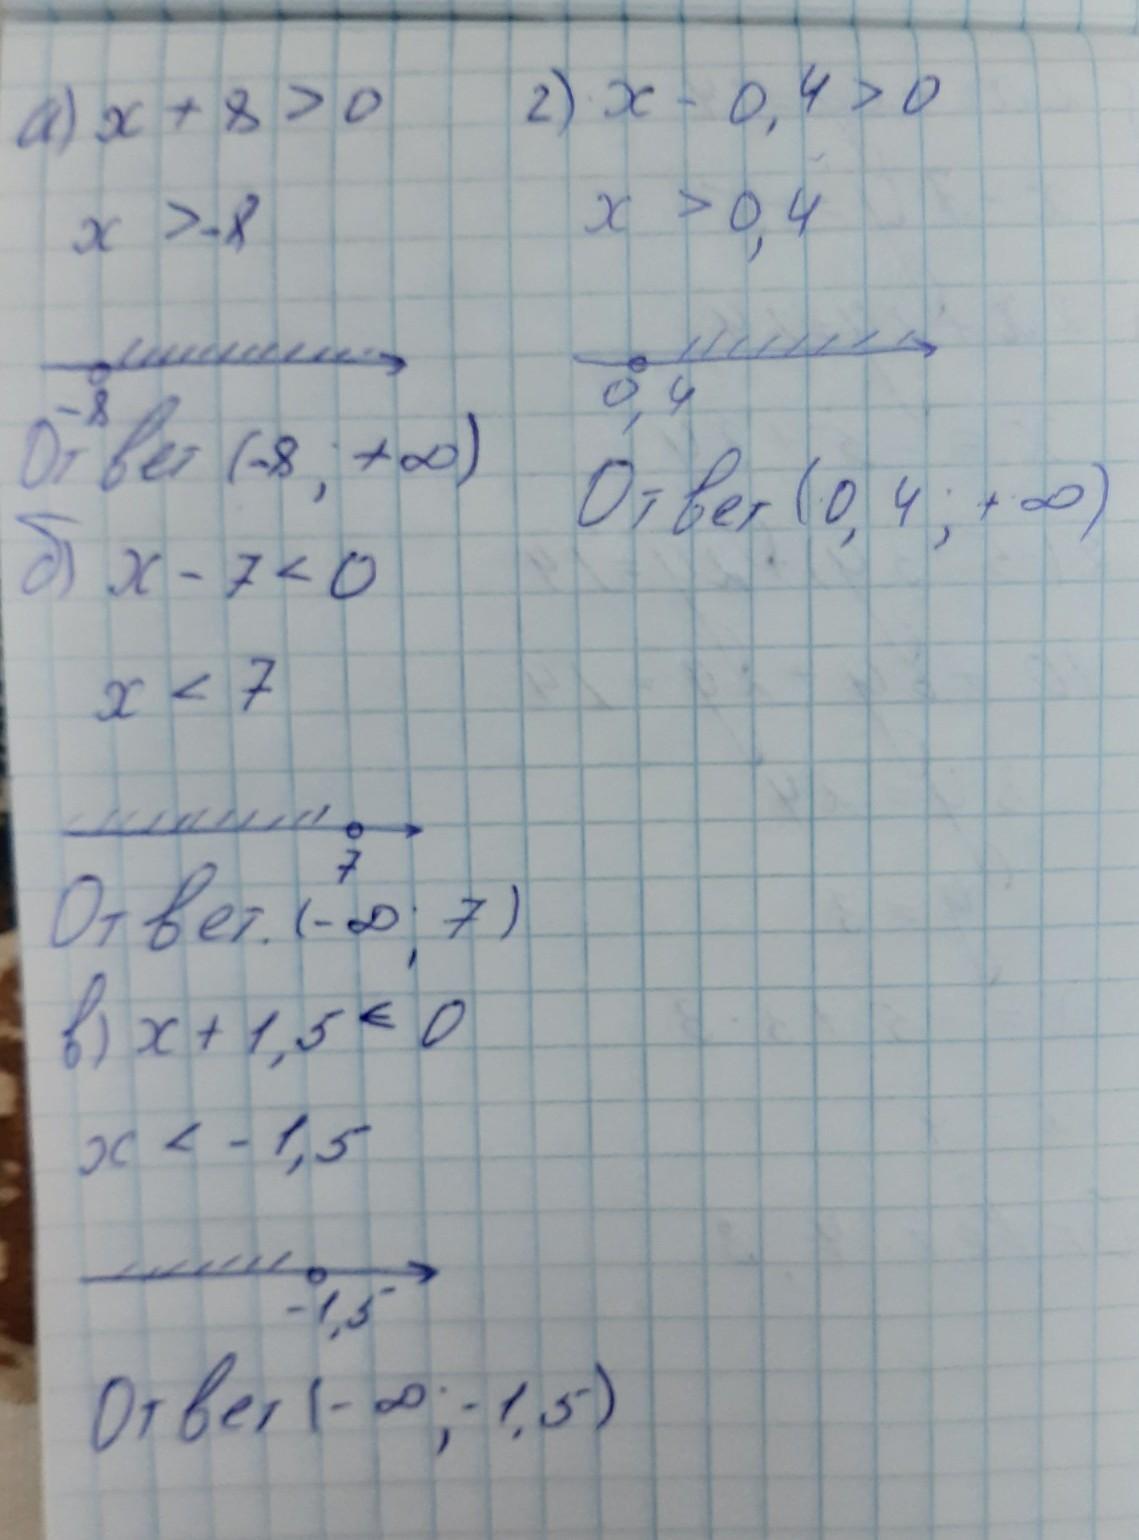 а) x + 8 > 0
x > -8
-8
Ответ (-8; +∞)
б) x - 7 < 0
x < 7
7
Ответ. (-∞; 7)
в) x + 1,5 < 0
x < -1,5
-1,5
Ответ (-∞; -1,5)
г) x - 0,4 > 0
x > 0,4
0,4
Ответ (0,4; +∞)